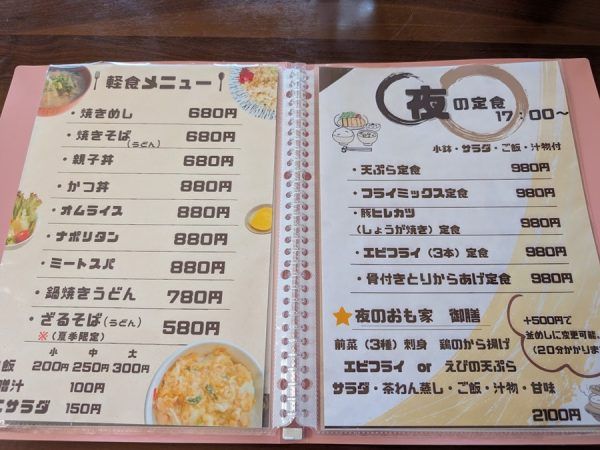 軽食メニュー
・焼きめし 680円
・焼きそば(うどん) 680円
・親子丼 680円
・かつ丼 880円
・オムライス 880円
・ナポリタン 880円
・ミートスパ 880円
・鍋焼きうどん 780円
・ざるそば(うどん) 580円
※(夏季限定)
小 中 大
飯 200円 250円 300円
噌汁 100円
ニサラダ 150円
夜の定食
17:00〜
小鉢・サラダ・ご飯・汁物付
・天ぷら定食 980円
・フライミックス定食 980円
・豚ヒレカツ
(しょうが焼き)定食 980円
・エビフライ(3本)定食 980円
・骨付きとりからあげ定食 980円
夜のおも家 御膳
+500円で
釜めしに変更可能。
(20分かかりま
前菜(3種)刺身 鶏のから揚げ
エビフライ or えびの天ぷら
サラダ・茶わん蒸し・ご飯・汁物・甘味
2100円